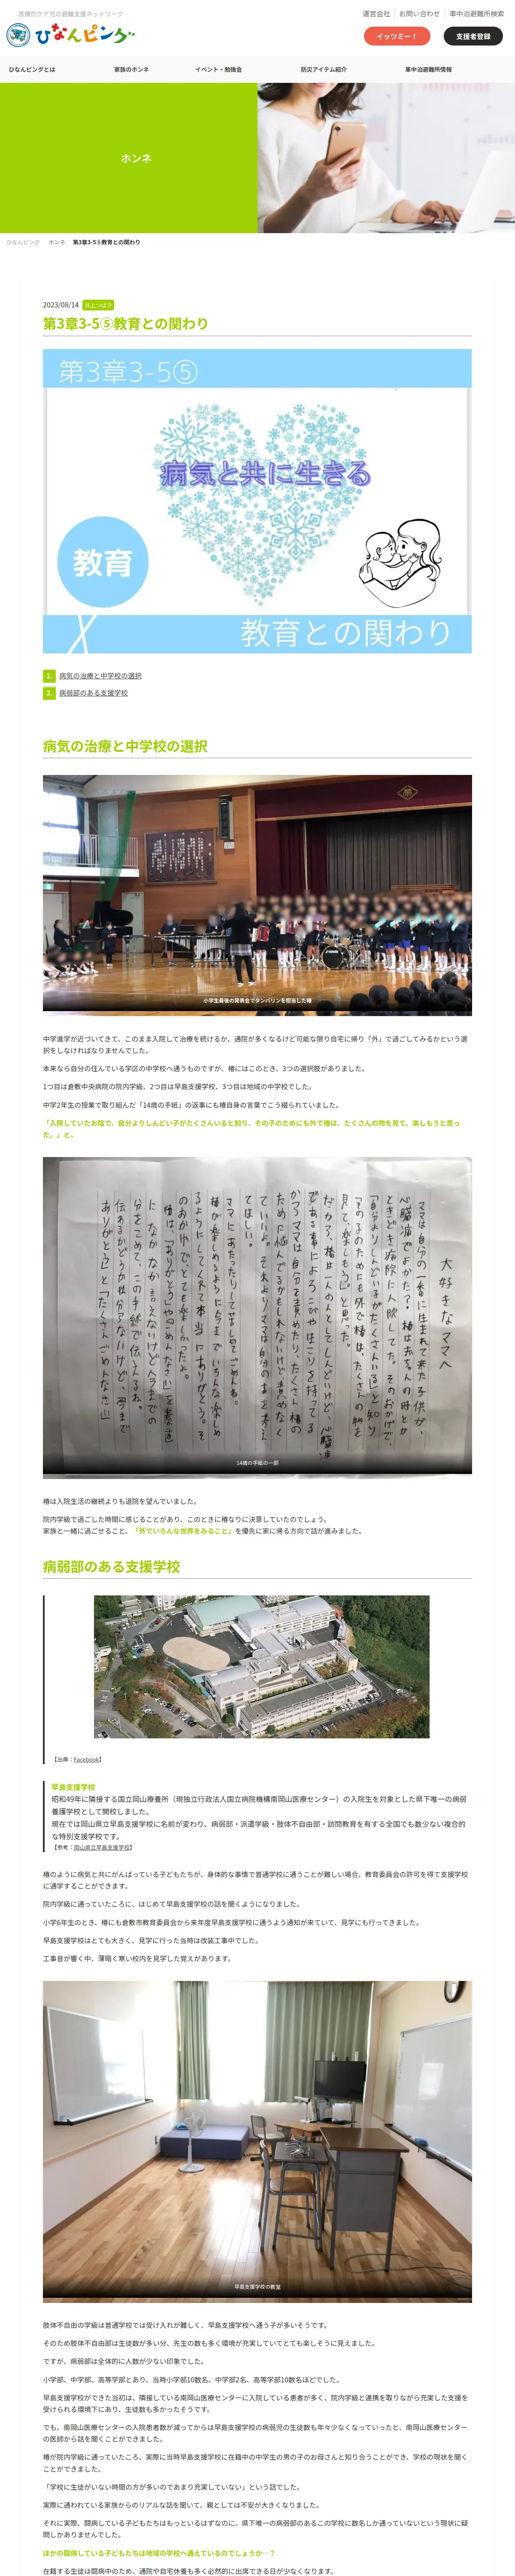 医療的ケア児の避難支援ネットワーク
ひなんピング
運営会社
お問い合わせ
車中泊避難所検索
イッツミー！
支援者登録
ひなんピングとは
家族のホンネ
イベント・勉強会
防災アイテム紹介
車中泊避難所情報
ホンネ
ひなんピング ホンネ 第3章3-5⑤教育との関わり
2023/08/14 井上つばき
第3章3-5⑤教育との関わり
第3章3-5⑤
病気と共に生きる
教育
教育との関わり
1. 病気の治療と中学校の選択
2. 病弱部のある支援学校
病気の治療と中学校の選択
小学生最後の発表会でタンバリンを担当した椿
中学進学が近づいてきて、このまま入院して治療を続けるか、通院が多くなるけど可能な限り自宅に帰り「外」で過ごしてみるかという選
択をしなければなりませんでした。
本来なら自分の住んでいる学区の中学校へ通うものですが、椿にはこのとき、3つの選択肢がありました。
1つ目は倉敷中央病院の院内学級、2つ目は早島支援学校、3つ目は地域の中学校でした。
中学2年生の授業で取り組んだ「14歳の手紙」の返事にも椿自身の言葉でこう綴られていました。
「入院していたお陰で、自分よりしんどい子がたくさんいると知り、その子のためにも外で椿は、たくさんの物を見て、楽しもうと思っ
た。」と。
大好きなママへ
ママは自分の一番に生まれて来た子供が、
14歳の手紙の一部
椿は入院生活の継続よりも退院を望んでいました。
院内学級で過ごした時間に感じることがあり、このときに椿なりに決意していたのでしょう。
家族と一緒に過ごせること、「外でいろんな世界をみること」を優先に家に帰る方向で話が進みました。
病弱部のある支援学校
【出典：Facebook】
早島支援学校
昭和49年に隣接する国立岡山療養所（現独立行政法人国立病院機構南岡山医療センター）の入院生を対象とした県下唯一の病弱
養護学校として開校しました。
現在では岡山県立早島支援学校に名前が変わり、病弱部・派遣学級・肢体不自由部・訪問教育を有する全国でも数少ない複合的
な特別支援学校です。
【参考：岡山県立早島支援学校】
椿のように病気と共にがんばっている子どもたちが、身体的な事情で普通学校に通うことが難しい場合、教育委員会の許可を得て支援学校
に通学することができます。
院内学級に通っていたころに、はじめて早島支援学校の話を聞くようになりました。
小学6年生のとき、椿にも倉敷市教育委員会から来年度早島支援学校に通うよう通知が来ていて、見学にも行ってきました。
早島支援学校はとても大きく、見学に行った当時は改装工事中でした。
工事音が響く中、薄暗く寒い校内を見学した覚えがあります。
早島支援学校の教室
肢体不自由の学級は普通学校では受け入れが難しく、早島支援学校へ通う子が多いそうです。
そのため肢体不自由部は生徒数が多い分、先生の数も多く環境が充実していてとても楽しそうに見えました。
ですが、病弱部は全体的に人数が少ない印象でした。
小学部、中学部、高等学部とあり、当時小学部10数名、中学部2名、高等学部10数名ほどでした。
早島支援学校ができた当初は、隣接している南岡山医療センターに入院している患者が多く、院内学級と連携を取りながら充実した支援を
受けられる環境下にあり、生徒数も多かったそうです。
でも、南岡山医療センターの入院患者数が減ってからは早島支援学校の病弱児の生徒数も年々少なくなっていったと、南岡山医療センター
の医師から話を聞くことができました。
椿が院内学級に通っていたころ、実際に当時早島支援学校に在籍中の中学生の男の子のお母さんと知り合うことができ、学校の現状を聞く
ことができました。
「学校に生徒がいない時間の方が多いのであまり充実していない」という話でした。
実際に通われている家族からのリアルな話を聞いて、親としては不安が大きくなりました。
それに実際、闘病している子どもたちはもっといるはずなのに、県下唯一の病弱部のあるこの学校に数名しか通っていないという現状に疑
問しかありませんでした。
ほかの闘病している子どもたちは地域の学校へ通えているのでしょうか…？
在籍する生徒は闘病中のため、通院や自宅休養も多く必然的に出席できる日が少なくなります。